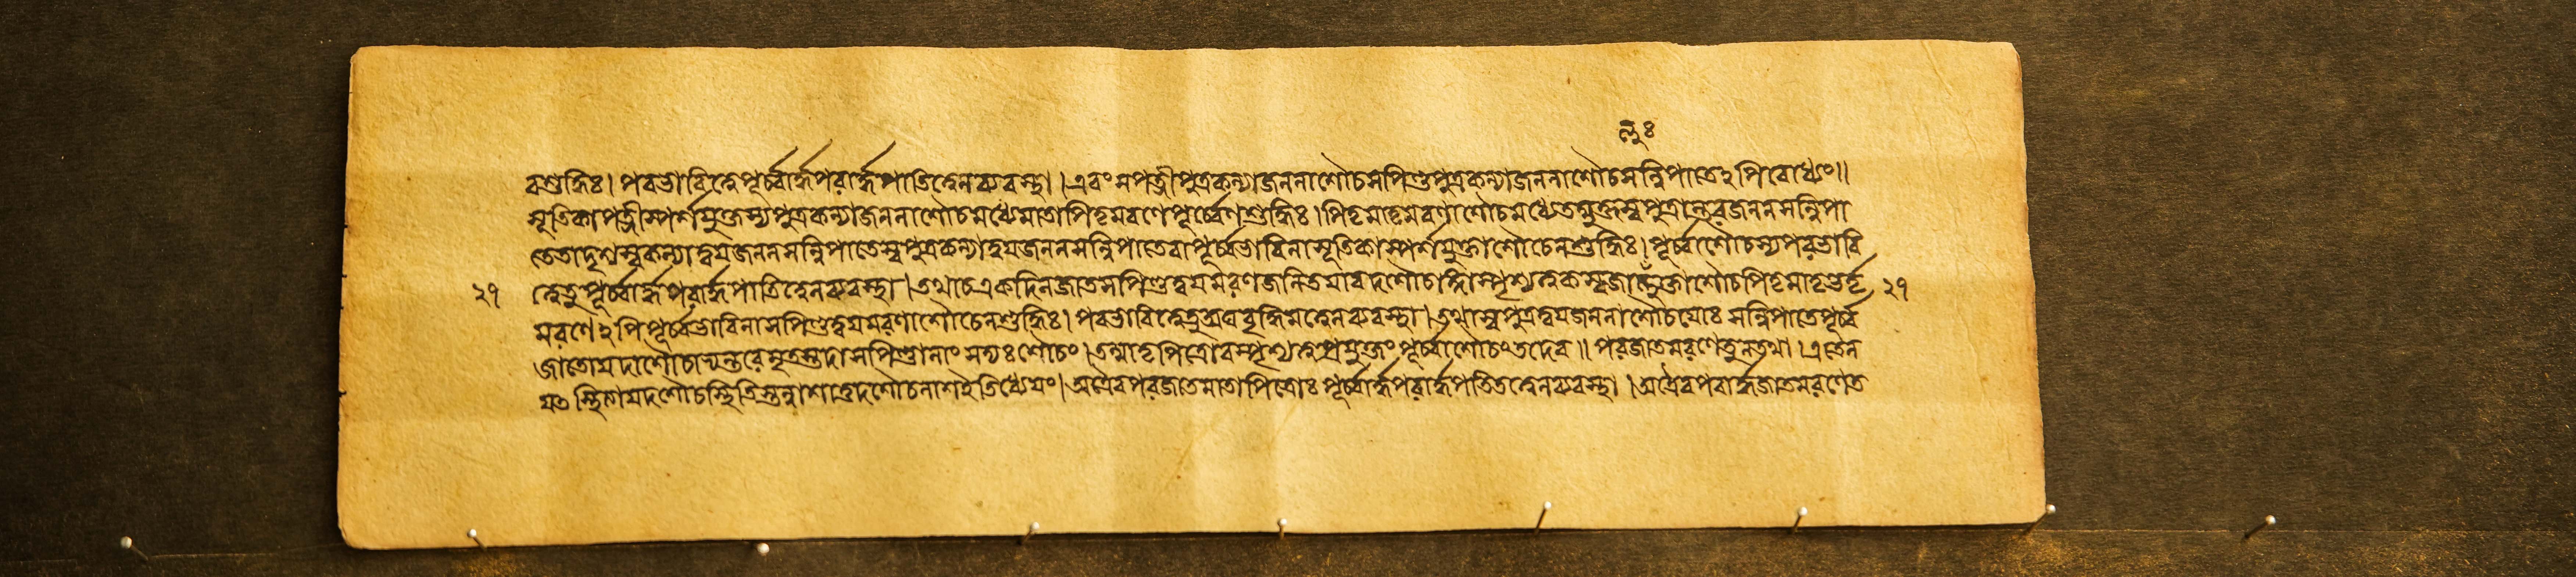 লুঃ
বশুদ্ধিঃ। পরভাবিত্বেপূর্ব্বার্দ্ধপরার্দ্ধপাতিত্বেনব্যবস্থা। এবং সপত্নীপুত্রকন্যাজননাশৌচসপিণ্ডপুত্রকন্যাজননাশৌচসন্নিপাতেঽপিবোধ্যং॥
সূতিকাপত্নীস্পর্শযুক্তস্যপুত্রকন্যাজননাশৌচমধ্যেমাতাপিতৃমরণেপূর্ব্বেণশুদ্ধিঃ। পিতৃমাতৃমরণাশৌচমধ্যেতদ্যুক্তস্বপুত্রান্তরজননসন্নিপা
তেতাদৃশস্বকন্যাদ্বয়জননসন্নিপাতেস্বপুত্রকন্যাদ্বয়জননসন্নিপাতেবাপূর্ব্বভাবিনাসূতিকাস্পর্শযুক্তাশৌচেনশুদ্ধিঃ। পূর্ব্বাশৌচস্যপরভাবি
২১ ত্বেতুপূর্ব্বার্দ্ধপরার্দ্ধপাতিত্বেনব্যবস্থা। তথাচএকদিনজাতসপিণ্ডদ্বয়মরণজনিতযাবদশৌচাঙ্গাস্পৃশ্যত্বকস্বজা পিতৃমাতৃভর্ত্তৃ ২১
মরণেঽপিপূর্ব্বভাবিনাসপিণ্ডদ্বয়মরণাশৌচেনশুদ্ধিঃ। পরভাবিত্বেতু অঘবৃদ্ধিমত্ত্বেনব্যবস্থা। তথাস্বপুত্রদ্বয়জননাশৌচয়োঃ সন্নিপাতেপূর্ব্ব
জাতোযদাশৌচাভ্যন্তরেমৃতস্তদাসপিণ্ডানাং সদ্যঃশৌচং। তন্মাতৃপিত্রোরস্পৃশ্যত্ব যুক্তং পূর্ব্বাশৌচংতদেব॥ পরজাতমরণেতুনতথা। এতেন
যত স্থিত্যাযদশৌচস্থিতিস্তন্নাশাত্তদশৌচনাশইতিধ্যেয়ং। অত্রৈবপরজাতমাতাপিত্রোঃ পূর্ব্বার্দ্ধপরার্দ্ধপতিতত্বেনব্যবস্থা। অত্রৈবপরার্দ্ধজাতমরণেত